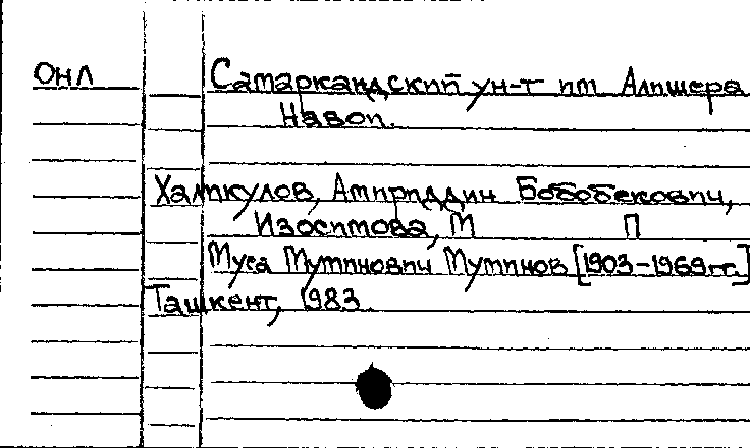 ОНЛ
Самаркандский ун-т им Алишера
Навои.
Халикулов, Амириддин Бобобекович,
Изосимова, М П
Муса Муминович Муминов [1903-1969гг.]
Ташкент, 1983.